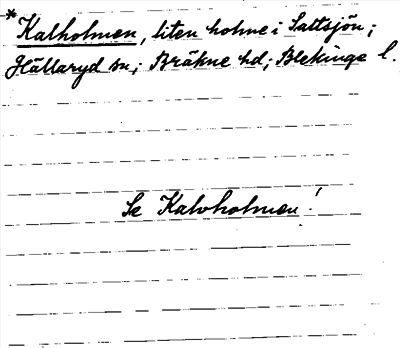 *Kalholmen, liten holme i Saltsjön;
Hällaryd sn; Bräkne hd; Blekinge l.
Se Kalvholmen!